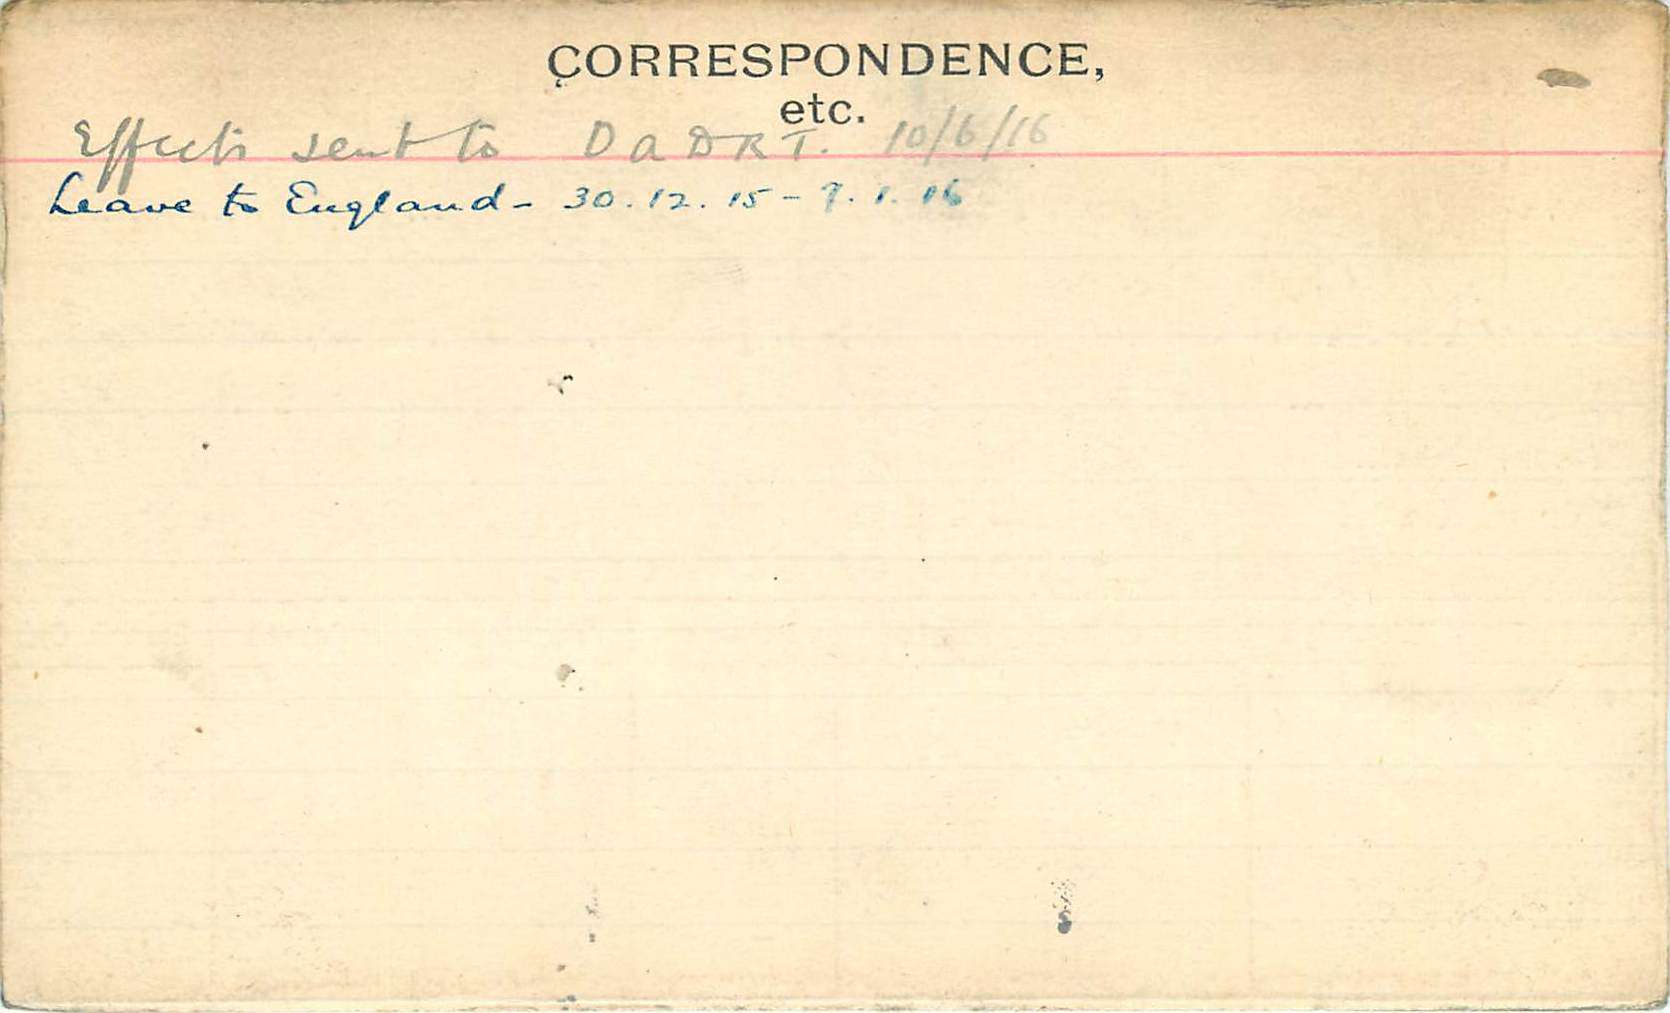 CORRESPONDENCE,
etc.
Effects sent to DADRT. 10/6/16
Leave to England - 30.12.15 - 9.1.16